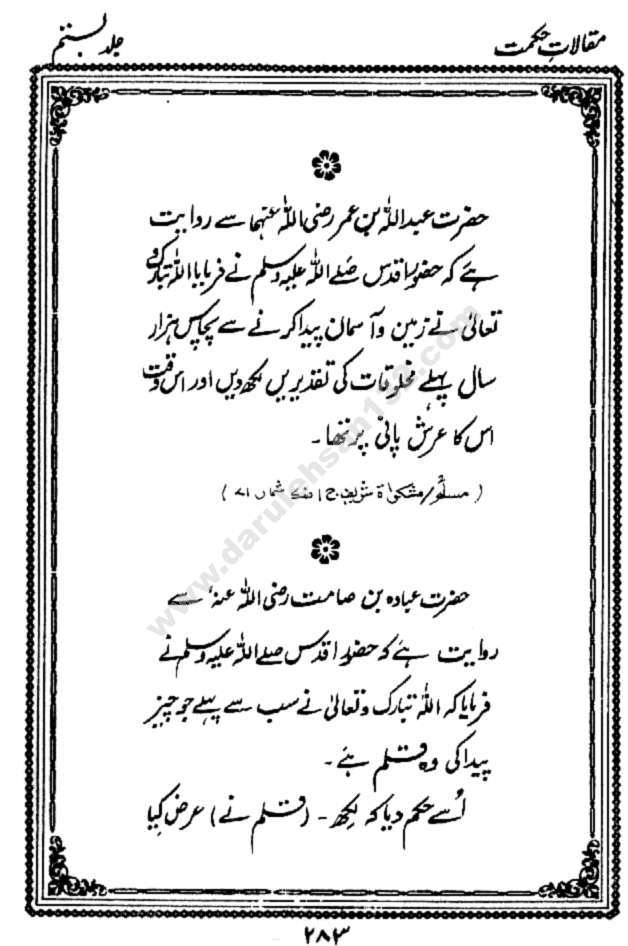 مقالاتِ حکمت
جلد بستم
حضرت عبداللہ بن عمر رضی اللہ عنہما سے روایت
ہئے کہ حضور اقدس صلے اللہ علیہ وسلم نے فرمایا اللہ تبارک و
تعالیٰ نے زمین و آسمان پیدا کرنے سے پچاس ہزار
سال پہلے مخلوقات کی تقدیریں لکھ دیں اور اس وقت
اس کا عرش پانی پر تھا۔
( مسلم / مشکوٰۃ شریف ج ۱ شمار ۷۱ )
حضرت عبادہ بن صامت رضی اللہ عنہ سے
روایت ہئے کہ حضور اقدس صلے اللہ علیہ وسلم نے
فرمایا کہ اللہ تبارک و تعالیٰ نے سب سے پہلے جو چیز
پیدا کی وہ قلم ہئے۔
اُسے حکم دیا کہ لکھ - (قلم نے) عرض کیا
۲۸۳